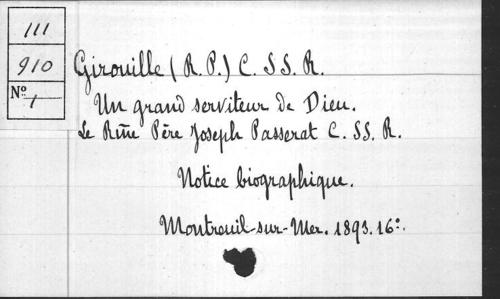 111
910
Nº
1
Girouille (R. P.) C. SS. R.
Un grand serviteur de Dieu.
Le Rme Père Joseph Passerat C. SS. R.
Notice biographique.
Montreuil-sur-Mer. 1893. 16º.